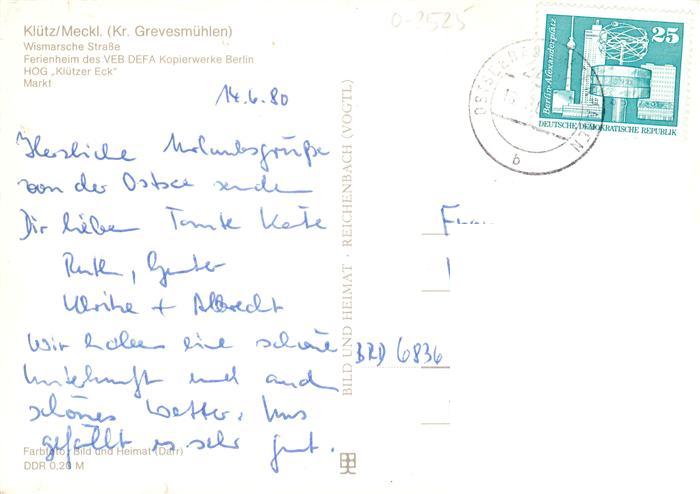 Klütz/Meckl. (Kr. Grevesmühlen)
Wismarsche Straße
Ferienheim des VEB DEFA Kopierwerke Berlin
HOG „Klützer Eck"
Markt
0-2525
14.6.80
Herzliche Urlaubsgrüße
von der Ostsee senden
Dir lieben Tante Käte
Ruth, Gunter
Ulrike + Albrecht
Wir haben eine schöne
Unterkunft und auch
schönes Wetter. Uns
gefällt es sehr gut.
Farbfoto: Bild und Heimat (Darr)
DDR 0,20 M
BILD UND HEIMAT · REICHENBACH (VOGTL)
25
Berlin-Alexanderplatz
DEUTSCHE DEMOKRATISCHE REPUBLIK
b
BRD 6836